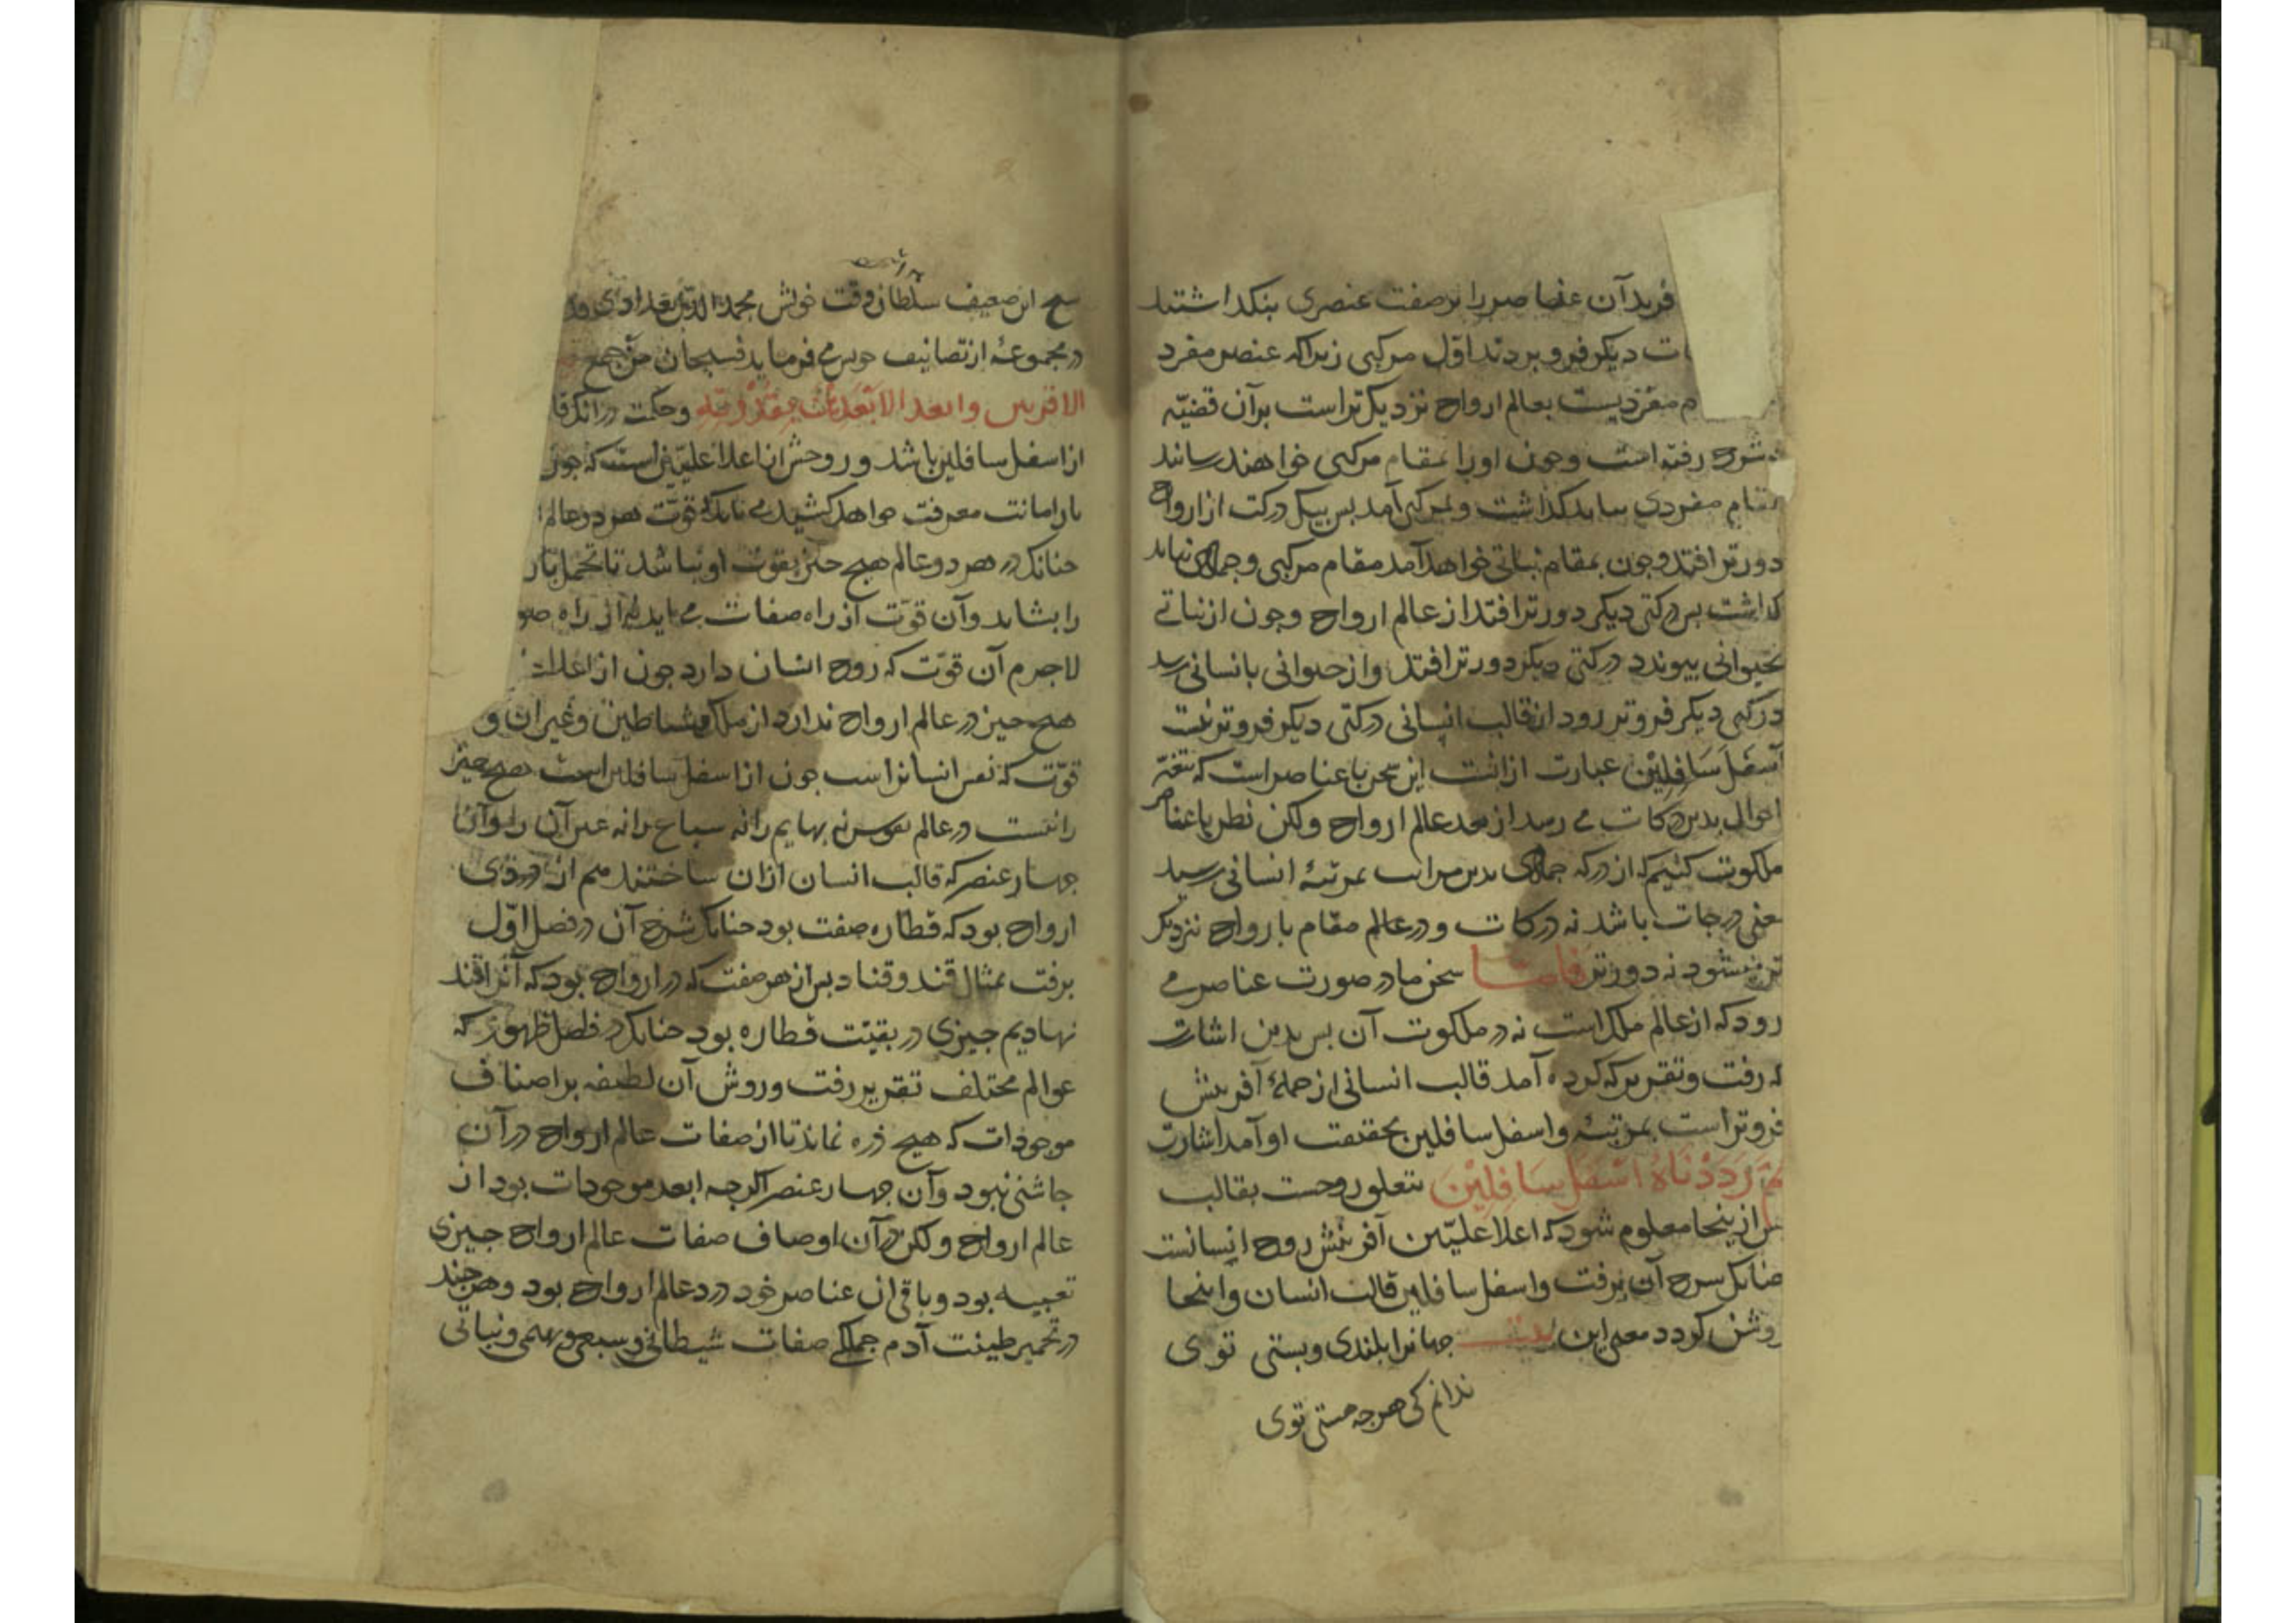 فرید آن عناصر را بر صفت عنصری بنکداشتند
ات دیکر فرو بردند اول مرکبی زیراکه عنصر مفرد
م مفردیست بعالم ارواح نزدیکتر است بر آن قضیّه
شرح رفته است وجون اورا بمقام مرکبی خواهند رسانند
مقام مفردی بباید کذاشت و بمرکبی آمد بس بیک درکت از ارواح
دورتر افتد وجون بمقام نباتی خواهد آمد مقام مرکبی وجمادی بباید
کذاشت بس درکتی دیکر دورتر افتد از عالم ارواح وجون از نباتی
بحیوانی بیوندد درکتی دیکر دورتر افتد واز حیوانی بانسانی رسد
درکتی دیکر فروتر رود از قالب انسانی درکتی دیکر فروتر نیست
اَسْفَلَ سَافِلِیْنَ عبارت ازانست این سخن با عناصر است که بتغیّر
احوال بدین درکات می رسد از بعد عالم ارواح ولکن نظر با عناصر
ملکوت کنیم که از درکه جمادی بدین مراتب بمرتبهٔ انسانی رسید
معنی درجات باشد نه درکات ودر عالم مقام بارواح نزدیک
تر میشود نه دورتر فامّا سخن ما در صورت عناصر می
رود که از عالم ملک است نه در ملکوت آن بس بدین اشارت
که رفت وتقریر که کرده آمد قالب انسانی از جملهٔ آفرینش
فروتر است بمرتبه واسفل سافلین بحقیقت او آمد اشارت
ثُمَّ رَدَدْنَاهُ اَسْفَلَ سَافِلِیْنَ بتعلق روحست بقالب
بس ازینجا معلوم شود که اعلا علیّین آفرینش روح انسانست
جنانک شرح آن برفت واسفل سافلین قالب انسان واینجا
روشن کردد معنی این بیت جهانرا بلندی وبستی توی
ندانم کی هرجه هستی توی
شیخ این ضعیف سلطان وقت خویش مجد الدین بغدادی
در مجموعهٔ از تصانیف خویش می فرماید فسبحان من جمع
الاقربین وابعد الابعدین بقدرته وحکمت در آنک قا
از اسفل سافلین باشد وروحش از اعلا علیّین است که جون
بار امانت معرفت خواهد کشید می باید که قوّت هر دو عالم
جنانک در هر دو عالم هیج جیز بقوّت او نباشد تا تحمل بار
را بشاید وآن قوّت از راه صفات می باید نه از راه صو
لاجرم آن قوّت که روح انسان دارد جون از اعلا
هیج جیز در عالم ارواح ندارد از ملک وشیاطین وغیر آن و
قوّت که نفس انسانراست جون از اسفل سافلین است هیج جیز
را نیست در عالم نفوس نه بهایم را نه سباع را نه غیر آن را وآن
جهار عنصر که قالب انسان ازان ساختند هم از دردی
ارواح بود که قطاره صفت بود جنانک شرح آن در فصل اوّل
برفت بمثال قند وقناد بس از هر صفت که در ارواح بود که آنرا قند
نهادیم جیزی در بقیّت قطاره بود جنانک در فصل ظهور که
عوالم مختلف تقریر رفت وروش آن لطیفه بر اصناف
موجودات که هیج ذره نماند تا از صفات عالم ارواح در آن
جاشنی نبود وآن جهار عنصر اکرجه ابعد موجودات بود از
عالم ارواح ولکن در آن اوصاف صفات عالم ارواح جیزی
تعبیه بود وباقی آن عناصر خود درد عالم ارواح بود وهرجند
در تخمیر طینت آدم جملکی صفات شیطانی وسبعی وبهیمی ونباتی